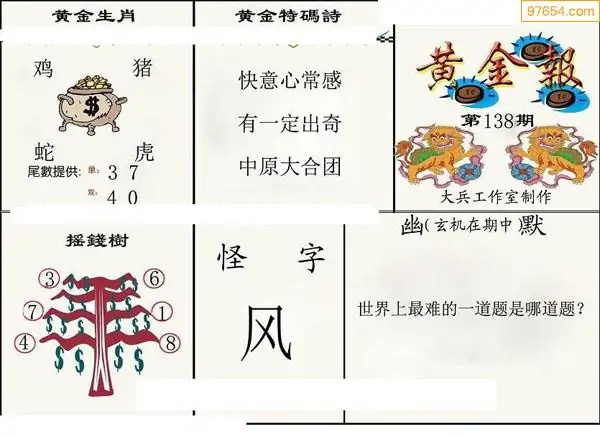 97654.com
黄金生肖
鸡 猪
$
蛇 虎
尾數提供: 单: 3 7
双: 4 0
黄金特碼詩
快意心常感
有一定出奇
中原大合团
黄金報
第138期
大兵工作室制作
摇錢樹
③ ⑥
⑦ ①
④ ⑧
怪 字
风
幽(玄机在期中)默
世界上最难的一道题是哪道题？